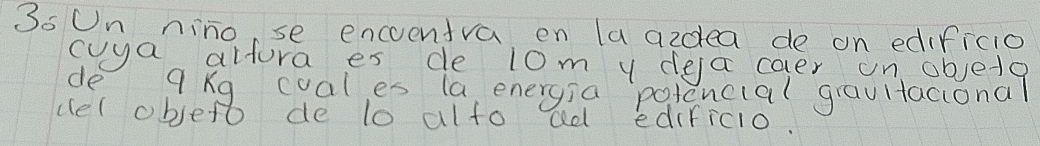 3: Un niño se encuentra en la azotea de un edificio
cuya altura es de 10m y deja caer un objeto
de 9 Kg cual es la energia potencial gravitacional
del objeto de lo alto del edificio.